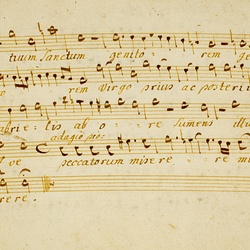 tuum Sanctum genito: rem ge
rem Virgo prius ac posteri
abrie: lis ab o: re Sumens illu
adagio
ve peccatorum misere: re mi
rere.